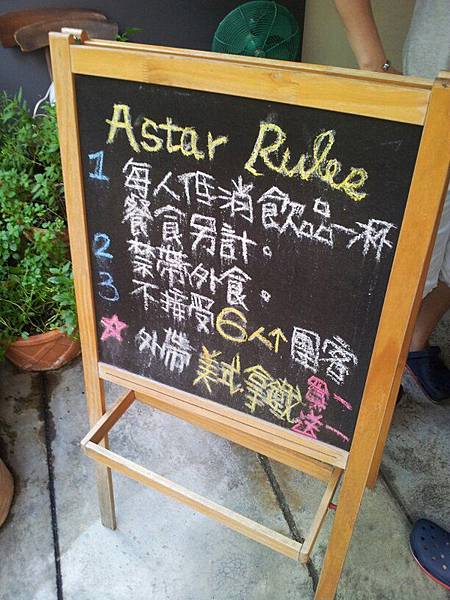 Astar Rules
1 每人低消飲品一杯
餐食另計。
2 禁帶外食。
3 不接受6人↑團客
☆外帶美式.拿鐵買一
送一